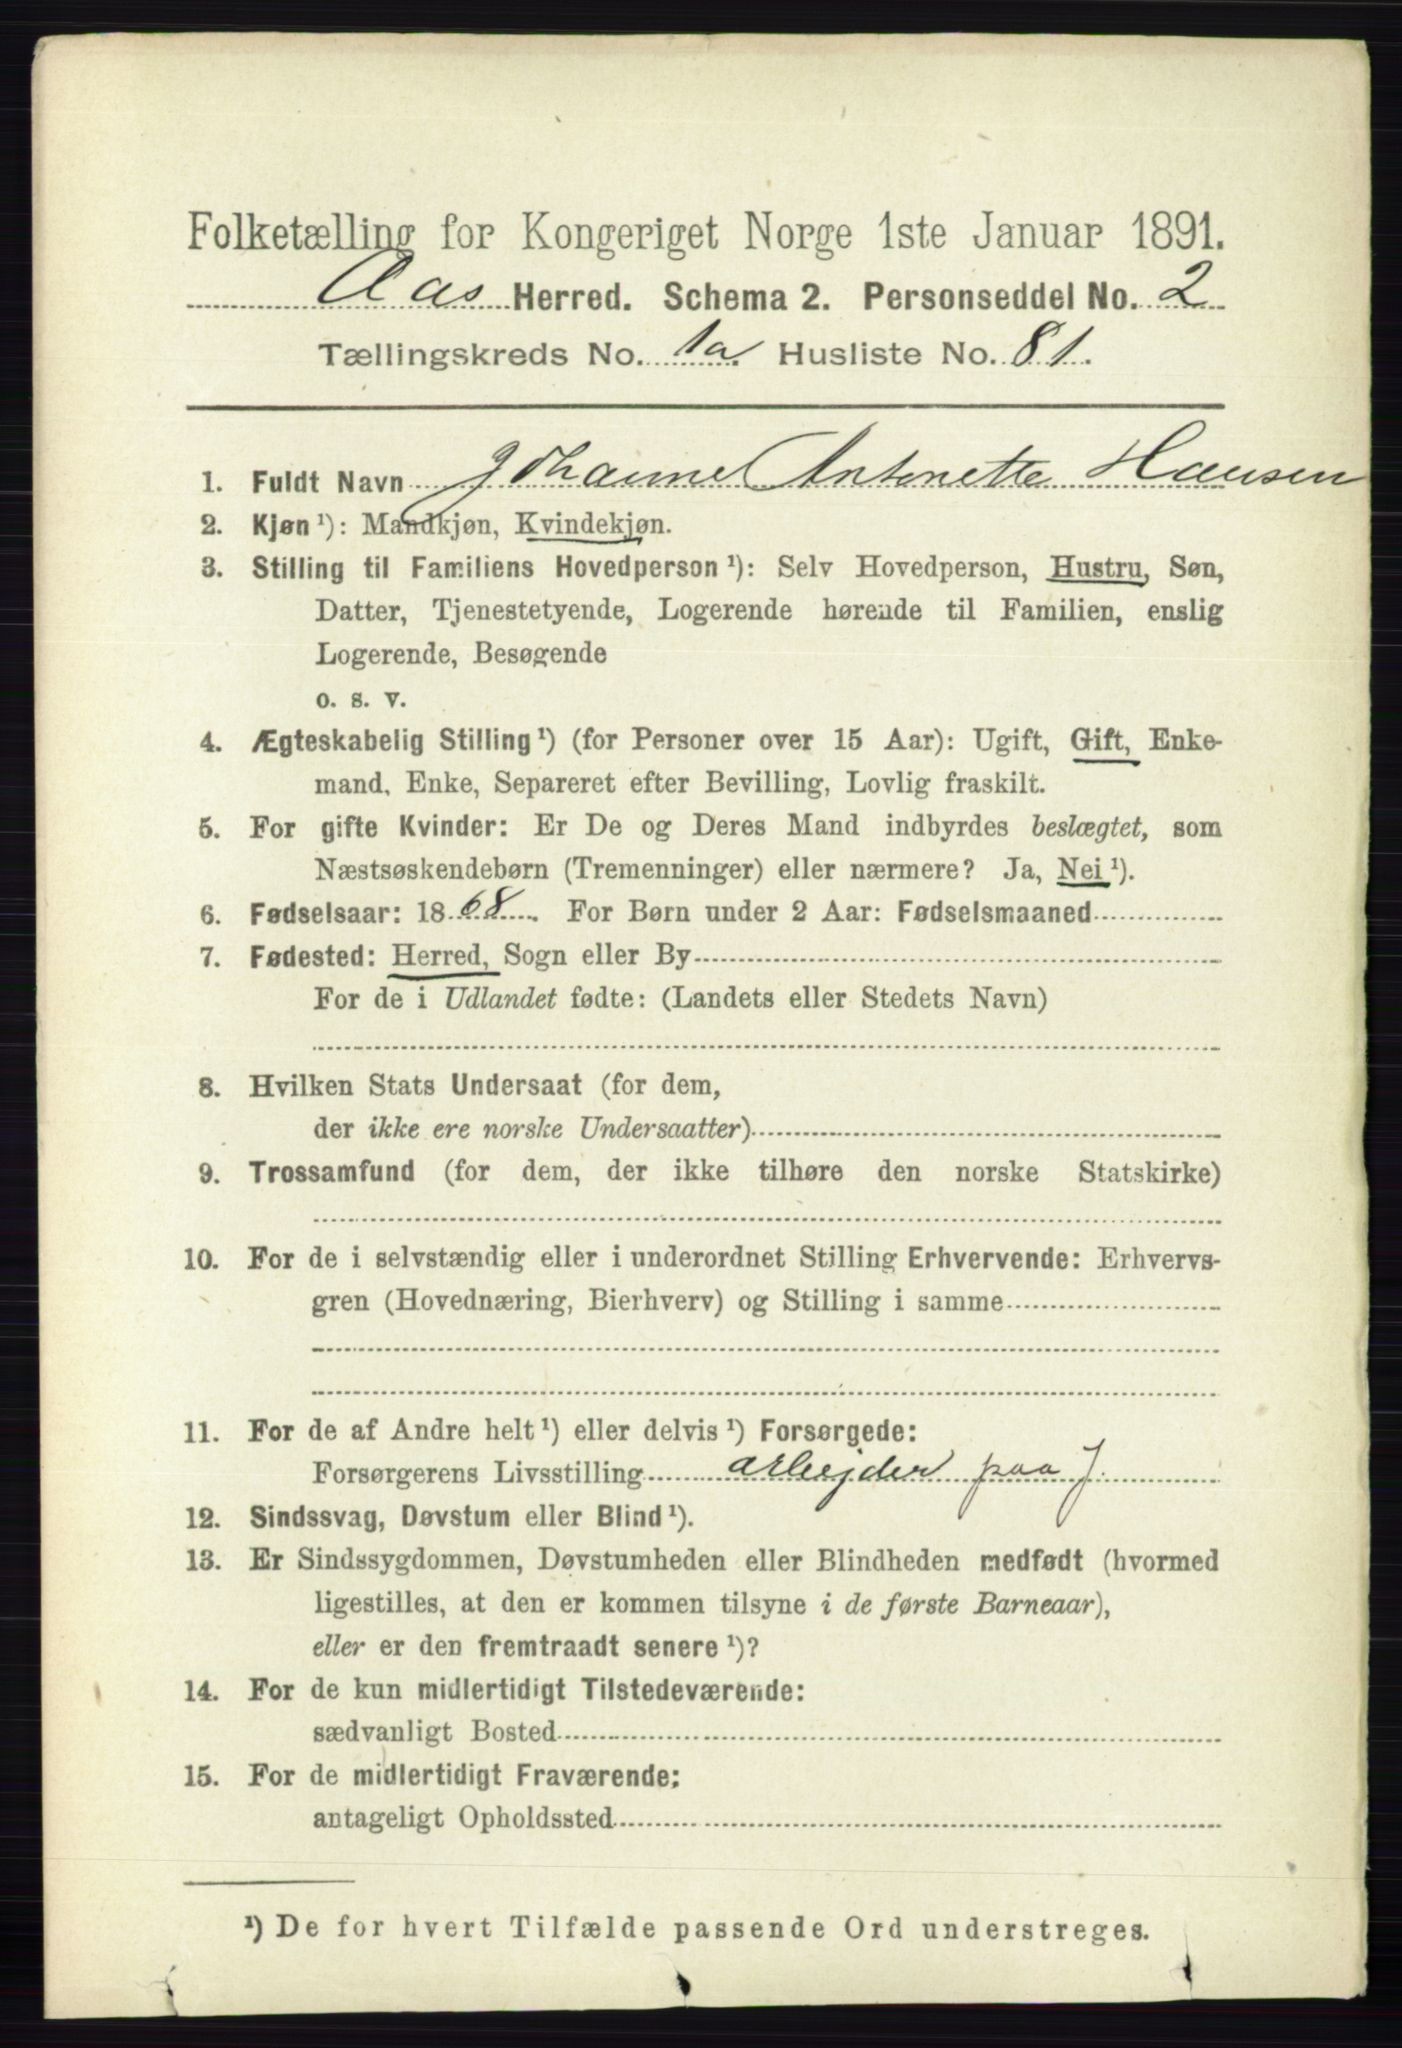 Folketælling for Kongeriget Norge 1ste Januar 1891.
Aas Herred. Schema 2. Personseddel No. 2
Tællingskreds No. 1a. Husliste No. 81.
1. Fuldt Navn Johanne Antonette Hansen
2. Kjøn ¹): Mandkjøn, Kvindekjøn.
3. Stilling til Familiens Hovedperson ¹): Selv Hovedperson, Hustru, Søn,
Datter, Tjenestetyende, Logerende hørende til Familien, enslig
Logerende, Besøgende
o. s. v.
4. Ægteskabelig Stilling ¹) (for Personer over 15 Aar): Ugift, Gift, Enke-
mand, Enke, Separeret efter Bevilling, Lovlig fraskilt.
5. For gifte Kvinder: Er De og Deres Mand indbyrdes beslægtet, som
Næstsøskendebørn (Tremenninger) eller nærmere? Ja, Nei ¹).
6. Fødselsaar: 1868. For Børn under 2 Aar: Fødselsmaaned
7. Fødested: Herred, Sogn eller By
For de i Udlandet fødte: (Landets eller Stedets Navn)
8. Hvilken Stats Undersaat (for dem,
der ikke ere norske Undersaatter)
9. Trossamfund (for dem, der ikke tilhøre den norske Statskirke)
10. For de i selvstændig eller i underordnet Stilling Erhvervende: Erhvervs-
gren (Hovednæring, Bierhverv) og Stilling i samme
11. For de af Andre helt ¹) eller delvis ¹) Forsørgede:
Forsørgerens Livsstilling arbejder paa J.
12. Sindssvag, Døvstum eller Blind ¹).
13. Er Sindssygdommen, Døvstumheden eller Blindheden medfødt (hvormed
ligestilles, at den er kommen tilsyne i de første Barneaar),
eller er den fremtraadt senere ¹)?
14. For de kun midlertidigt Tilstedeværende:
sædvanligt Bosted
15. For de midlertidigt Fraværende:
antageligt Opholdssted
¹) De for hvert Tilfælde passende Ord understreges.